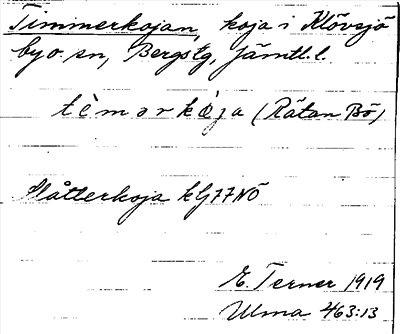 Timmerkojan, koja i Klövsjö
by o. sn, Bergs tg, Jämtl. l.
tèmərkòja (Rätan Bö)
Slåtterkoja kG77NÖ
E. Terner 1919
Ulma 463:13